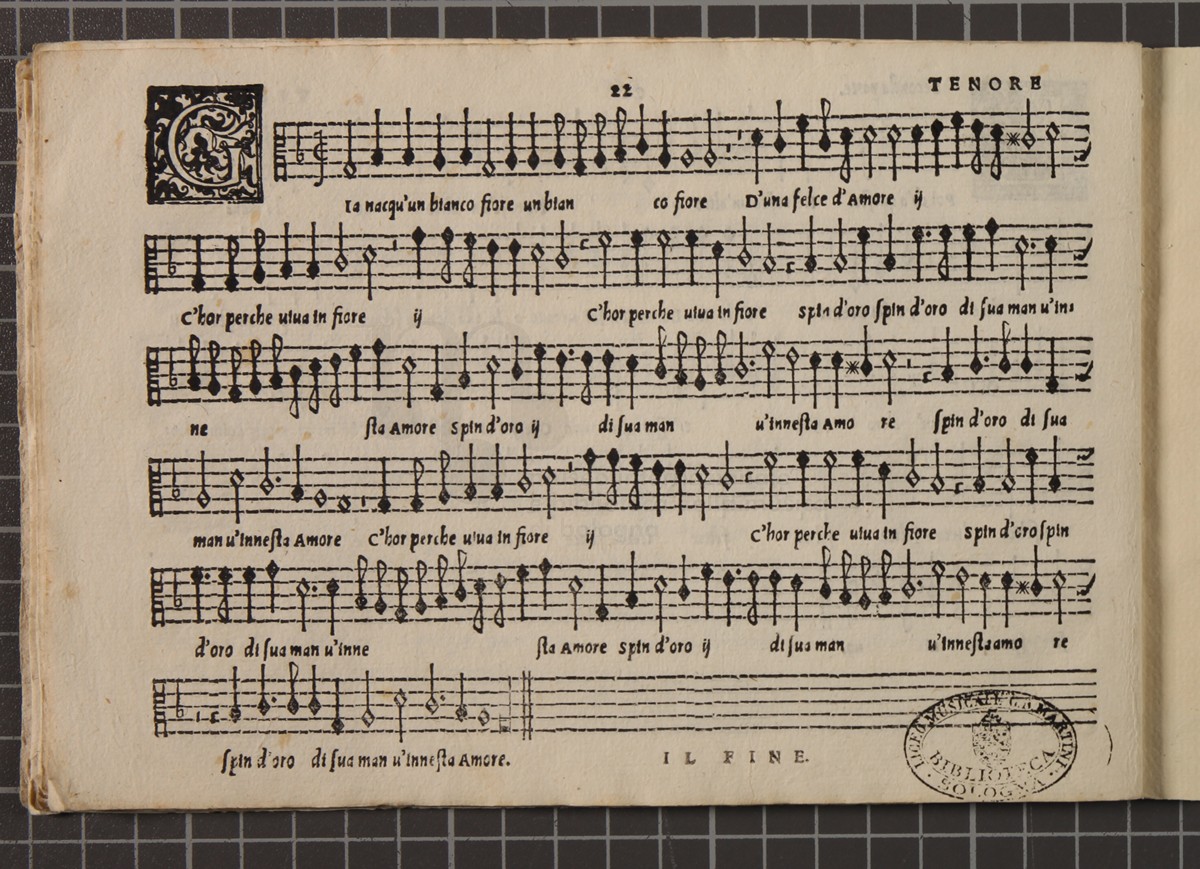 22
TENORE
GIa nacqu'un bianco fiore un bian co fiore D'una felce d'Amore ij
C'hor perche uiua in fiore ij C'hor perche uiua in fiore spin d'oro spin d'oro di sua man u'in-
ne sta Amore spin d'oro ij di sua man u'innesta Amo re spin d'oro di sua
man u'innesta Amore C'hor perche uiua in fiore ij C'hor perche uiua in fiore spin d'oro spin
d'oro di sua man u'inne sta Amore spin d'oro ij di sua man u'innesta amo re
spin d'oro di sua man u'innesta Amore.
IL FINE.
LICEO MUSICALE G.B. MARTINI
BIBLIOTECA
BOLOGNA